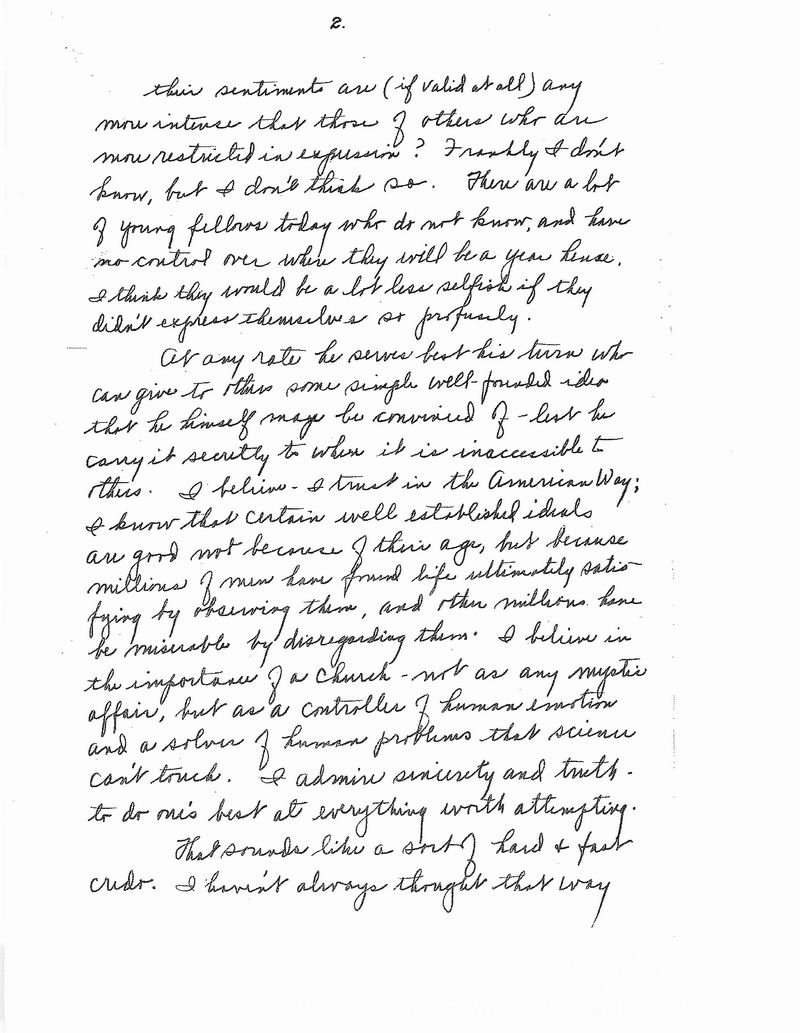 2.
their sentiments are (if valid at all) any
more intense that those of others who are
more restricted in expression? Frankly I don't
know, but I don't think so. There are a lot
of young fellows today who do not know, and have
no control over where they will be a year hense.
I think they would be a lot less selfish if they
didn't express themselves so profusely.
At any rate he serves best his turn who
can give to others some simple well-founded idea
that he himself maye be convinced of - lest he
carry it secretly to where it is inaccessible to
others. I believe - I trust in the American Way;
I know that certain well established ideals
are good not because of their age, but because
millions of men have found life ultimately satis-
fying by observing them, and other millions have
be miserable by disregarding them. I believe in
the importance of a Church - not as any mystic
affair, but as a controller of human emotion
and a solver of human problems that science
can't touch. I admire sincerety and truth -
to do one's best at everything worth attempting.
That sounds like a sort of hard & fast
credo. I haven't always thought that way